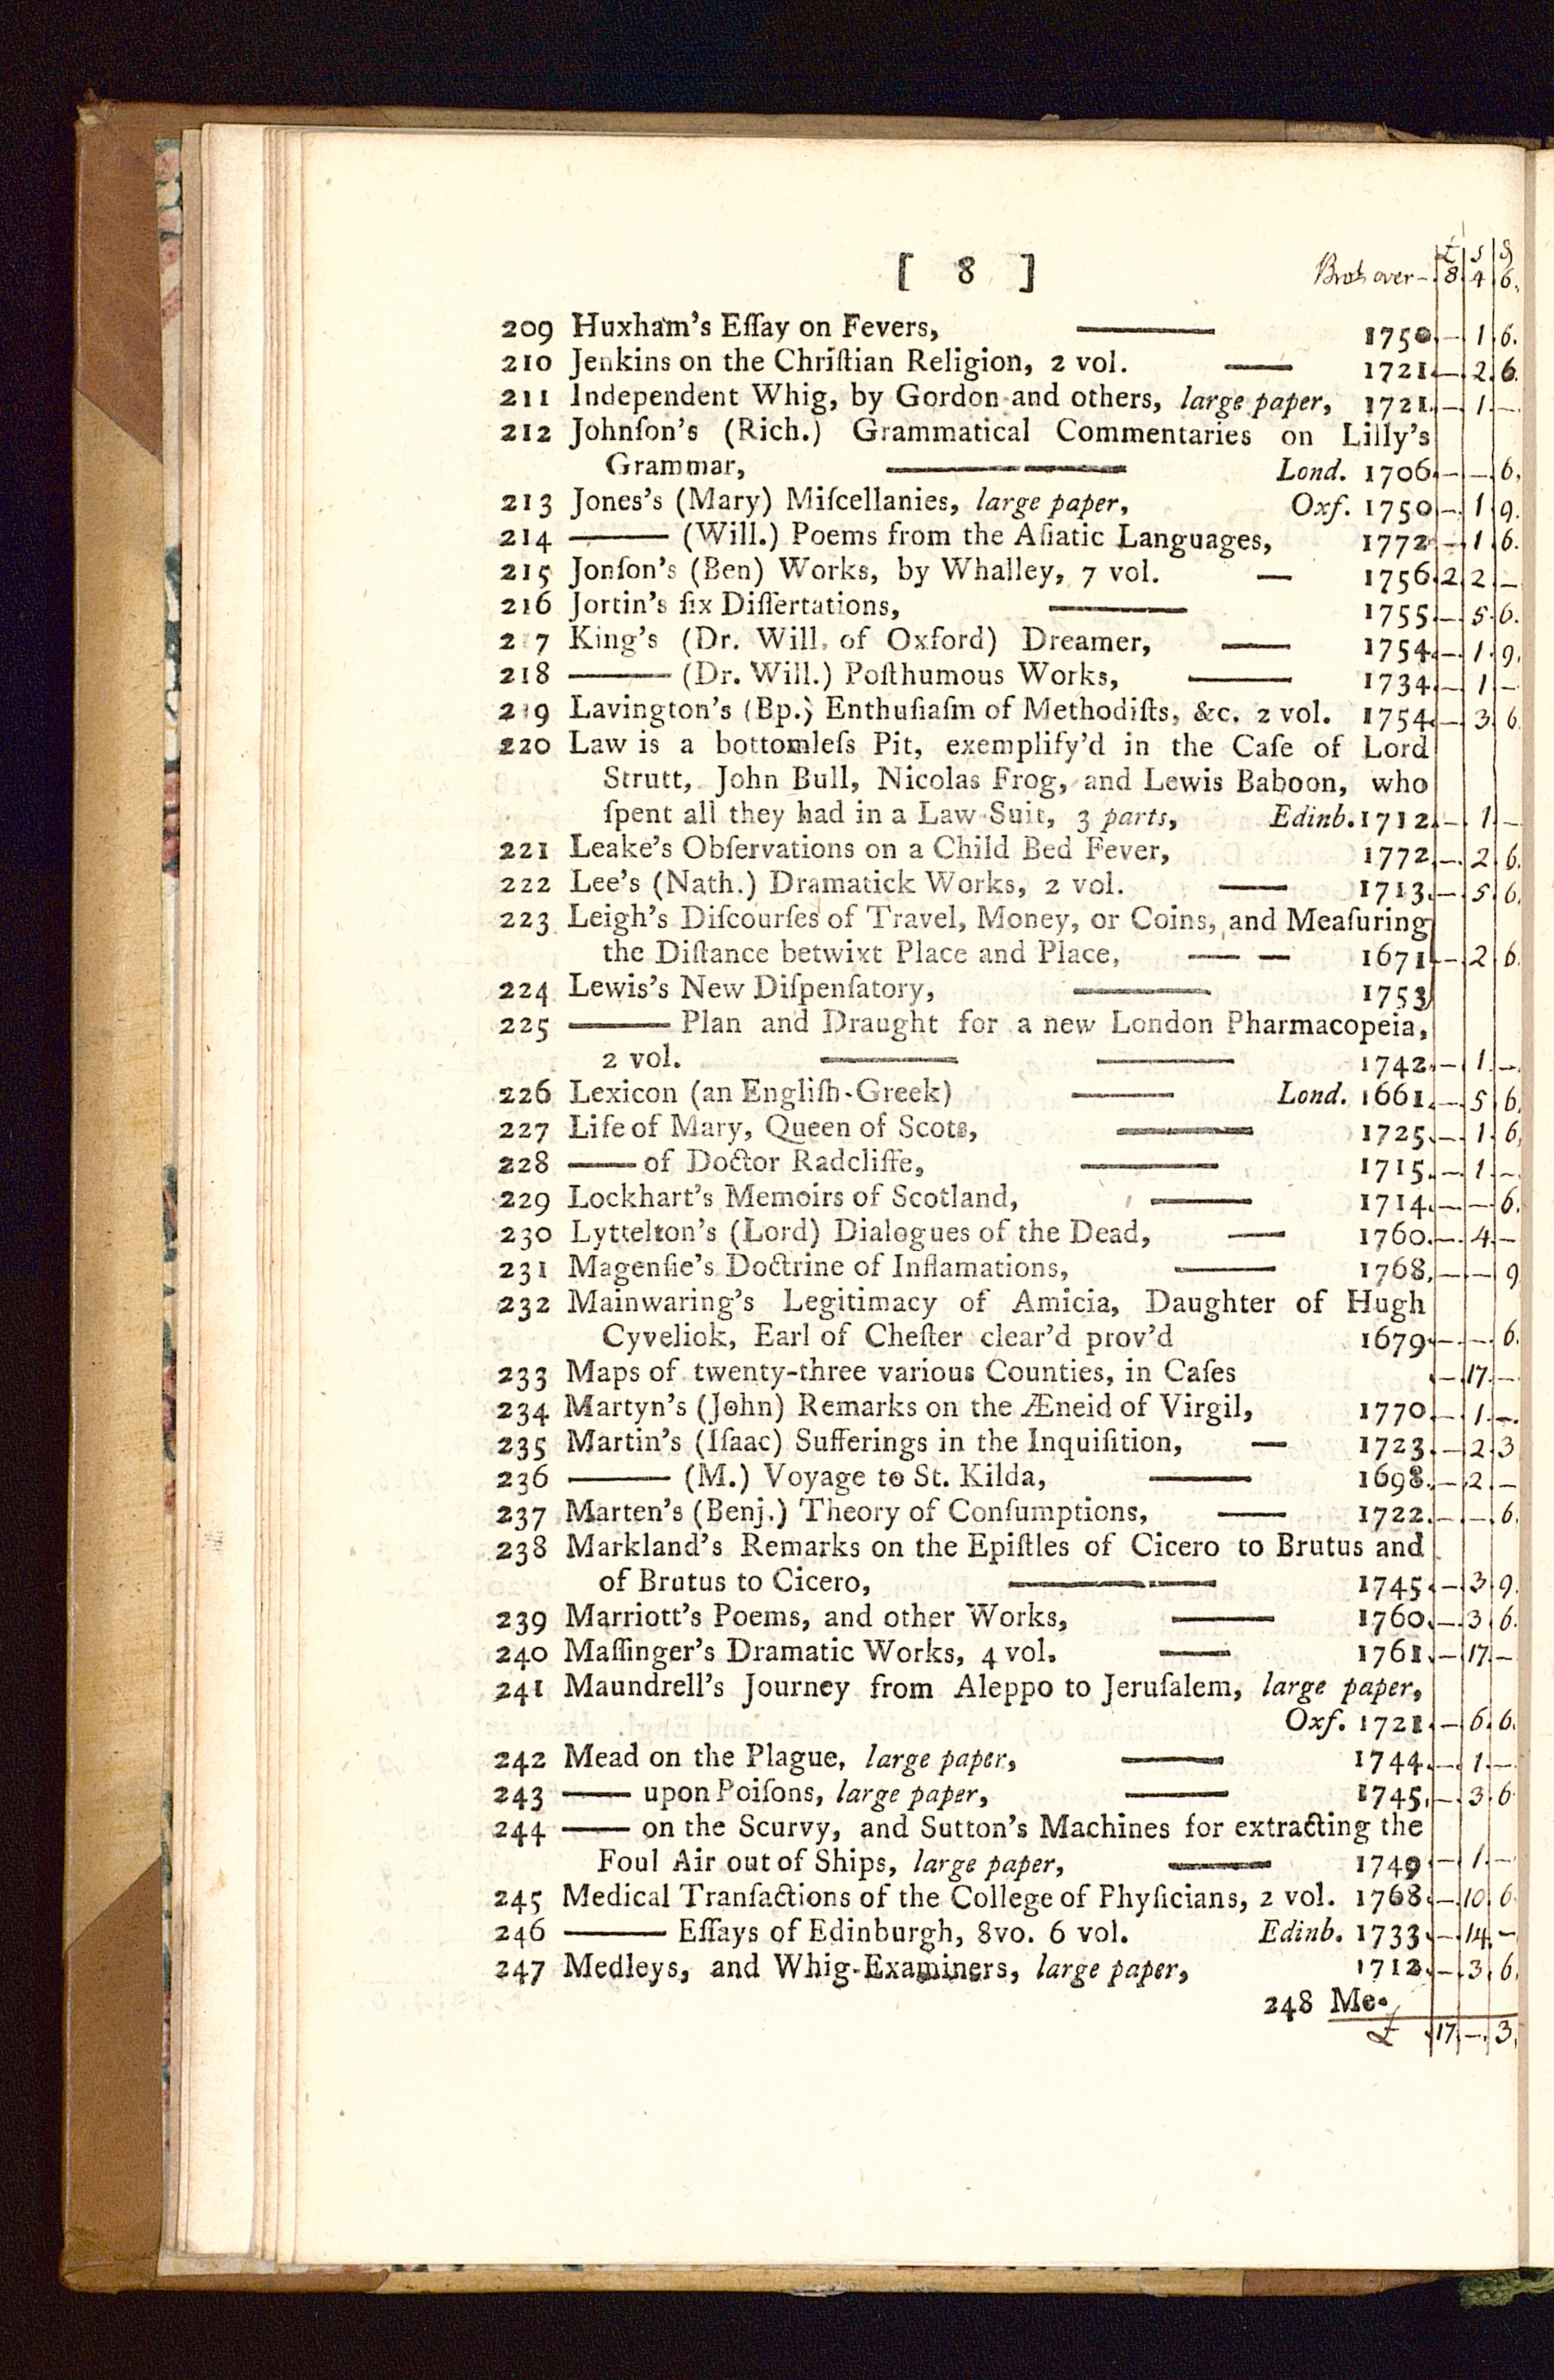 £ s d
[ 8 ] Brot over - 8 4 6.
209 Huxham's Eſſay on Fevers, —— 1750. – 1 6.
210 Jenkins on the Chriſtian Religion, 2 vol. —— 1721. – 2 6.
211 Independent Whig, by Gordon and others, large paper, 1721. – 1 –
212 Johnſon's (Rich.) Grammatical Commentaries on Lilly's
Grammar, —— Lond. 1706. – – 6.
213 Jones's (Mary) Miſcellanies, large paper, Oxf. 1750 – 1 9.
214 —— (Will.) Poems from the Aſiatic Languages, 1772 – 1 6.
215 Jonſon's (Ben) Works, by Whalley, 7 vol. — 1756. 2 2 –
216 Jortin's ſix Diſſertations, —— 1755 – 5 6.
2 7 King's (Dr. Will. of Oxford) Dreamer, —— 1754. – 1 9.
218 —— (Dr. Will.) Poſthumous Works, —— 1734. – 1 –
219 Lavington's (Bp.) Enthuſiaſm of Methodiſts, &c. 2 vol. 1754. – 3 6.
220 Law is a bottomleſs Pit, exemplify'd in the Caſe of Lord
Strutt, John Bull, Nicolas Frog, and Lewis Baboon, who
ſpent all they had in a Law-Suit, 3 parts, Edinb. 1712. – 1 –
221 Leake's Obſervations on a Child Bed Fever, 1772. – 2 6.
222 Lee's (Nath.) Dramatick Works, 2 vol. —— 1713. – 5 6.
223 Leigh's Diſcourſes of Travel, Money, or Coins, and Meaſuring
the Diſtance betwixt Place and Place, —— — 1671 – 2 6.
224 Lewis's New Diſpenſatory, —— 1753
225 —— Plan and Draught for a new London Pharmacopeia,
2 vol. —— —— 1742. – 1 –
226 Lexicon (an Engliſh-Greek) —— Lond. 1661. – 5 6.
227 Life of Mary, Queen of Scots, —— 1725. – 1 6.
228 —— of Doctor Radcliffe, —— 1715. – 1 –
229 Lockhart's Memoirs of Scotland, —— 1714. – – 6.
230 Lyttelton's (Lord) Dialogues of the Dead, —— 1760. – 4 –
231 Magenſie's Doctrine of Inflamations, —— 1768. – – 9
232 Mainwaring's Legitimacy of Amicia, Daughter of Hugh
Cyveliok, Earl of Cheſter clear'd prov'd 1679. – – 6.
233 Maps of twenty-three various Counties, in Caſes – 17 –
234 Martyn's (John) Remarks on the Æneid of Virgil, 1770. – 1 –
235 Martin's (Iſaac) Sufferings in the Inquiſition, — 1723. – 2 3
236 —— (M.) Voyage to St. Kilda, —— 1698. – 2 –
237 Marten's (Benj.) Theory of Conſumptions, —— 1722. – – 6.
238 Markland's Remarks on the Epiſtles of Cicero to Brutus and
of Brutus to Cicero, —— 1745. – 3 9.
239 Marriott's Poems, and other Works, —— 1760. – 3 6.
240 Maſſinger's Dramatic Works, 4 vol. —— 1761. – 17 –
241 Maundrell's Journey from Aleppo to Jeruſalem, large paper,
Oxf. 1721. – 6 6.
242 Mead on the Plague, large paper, —— 1744. – 1 –
243 —— upon Poiſons, large paper, —— 1745. – 3 6
244 —— on the Scurvy, and Sutton's Machines for extracting the
Foul Air out of Ships, large paper, —— 1749 – 1 –
245 Medical Tranſactions of the College of Phyſicians, 2 vol. 1768. – 10 6
246 —— Eſſays of Edinburgh, 8vo. 6 vol. Edinb. 1733. – 14 –
247 Medleys, and Whig-Examiners, large paper, 1712. – 3 6.
248 Me-
£ 17 – 3.